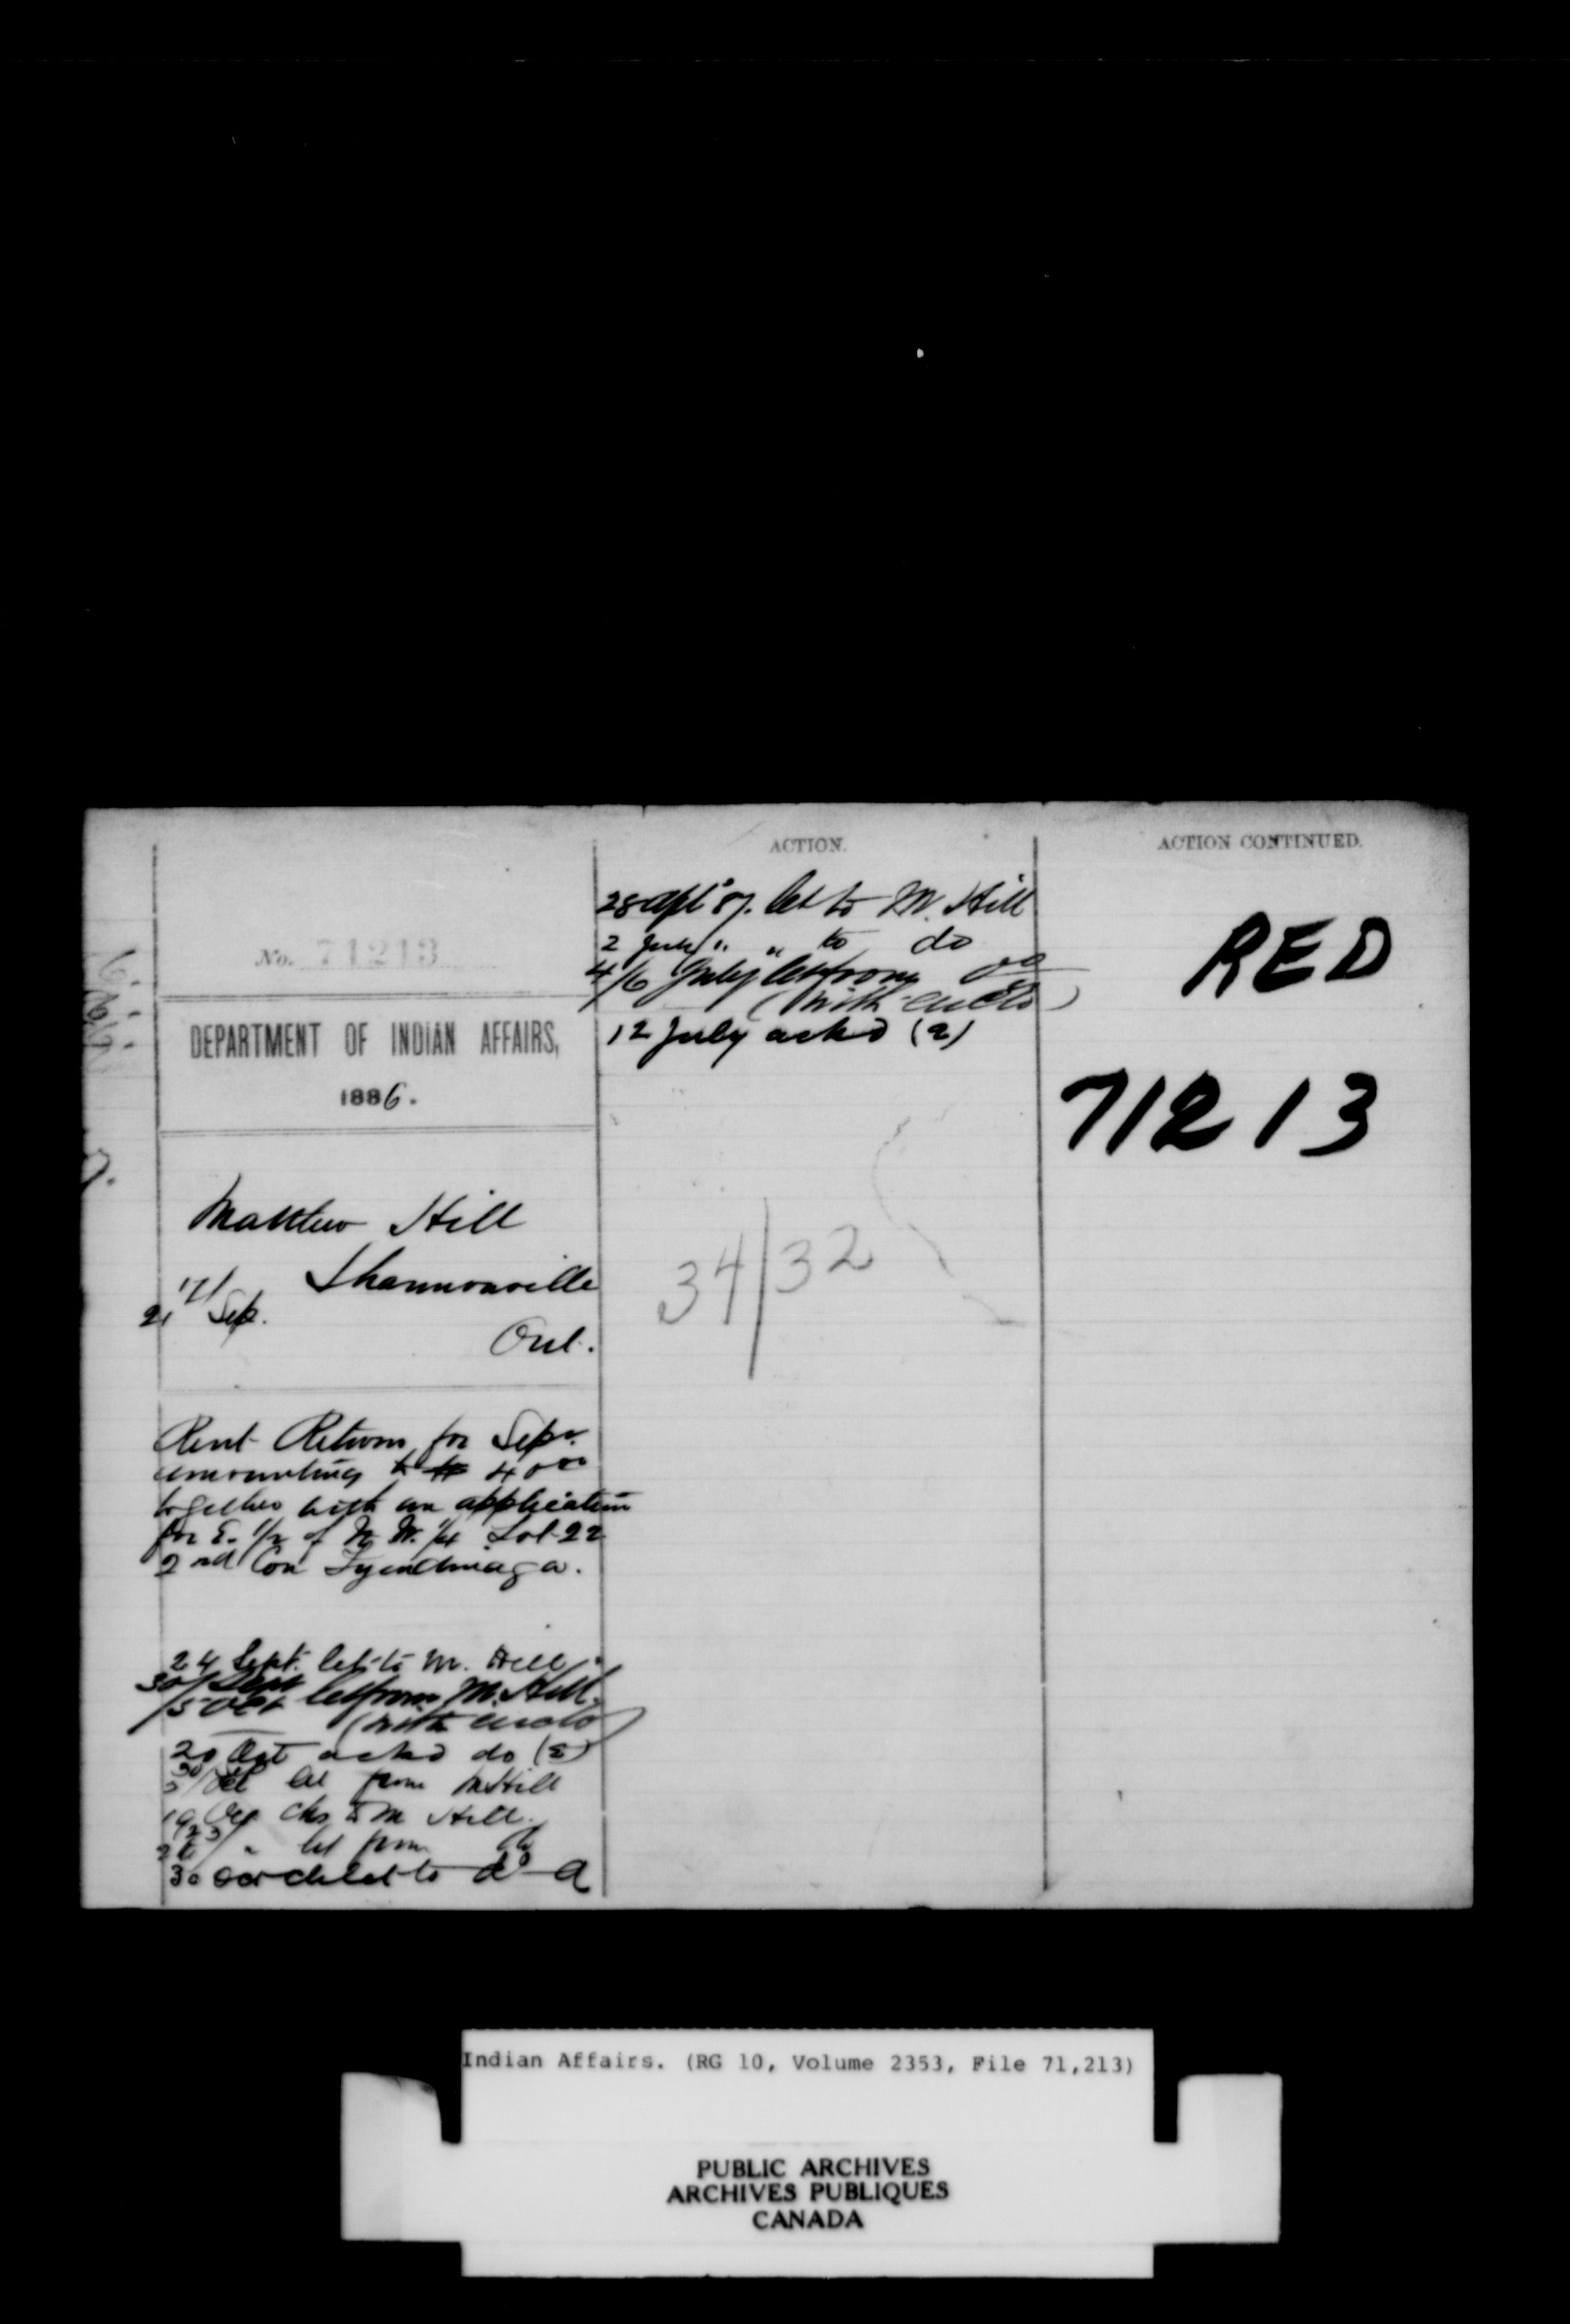 No. 71213
DEPARTMENT OF INDIAN AFFAIRS,
1886.
Matthew Hill
Shannonville
17/
21 Sep.
Ont.
Rent Return for Sepr.
amounting to $ 40 00
together with an application
for E. 1/2 of N. W. 1/4 Lot 22
2nd Con Tyendinaga.
24 Sept. let to M. Hill
30/ Sept
/5 Oct let from M. Hill.
(with enclo)
20 Oct ackd do
let from M Hill
19 M Hill.
let from do
30 let to do
ACTION.
28 Apl 87. let to M. Hill
2 July " " to do
4/6 July let from do
(with enclo)
12 July ackd (2)
34/32
ACTION CONTINUED.
RED
71213
Indian Affairs. (RG 10, Volume 2353, File 71,213)
PUBLIC ARCHIVES
ARCHIVES PUBLIQUES
CANADA